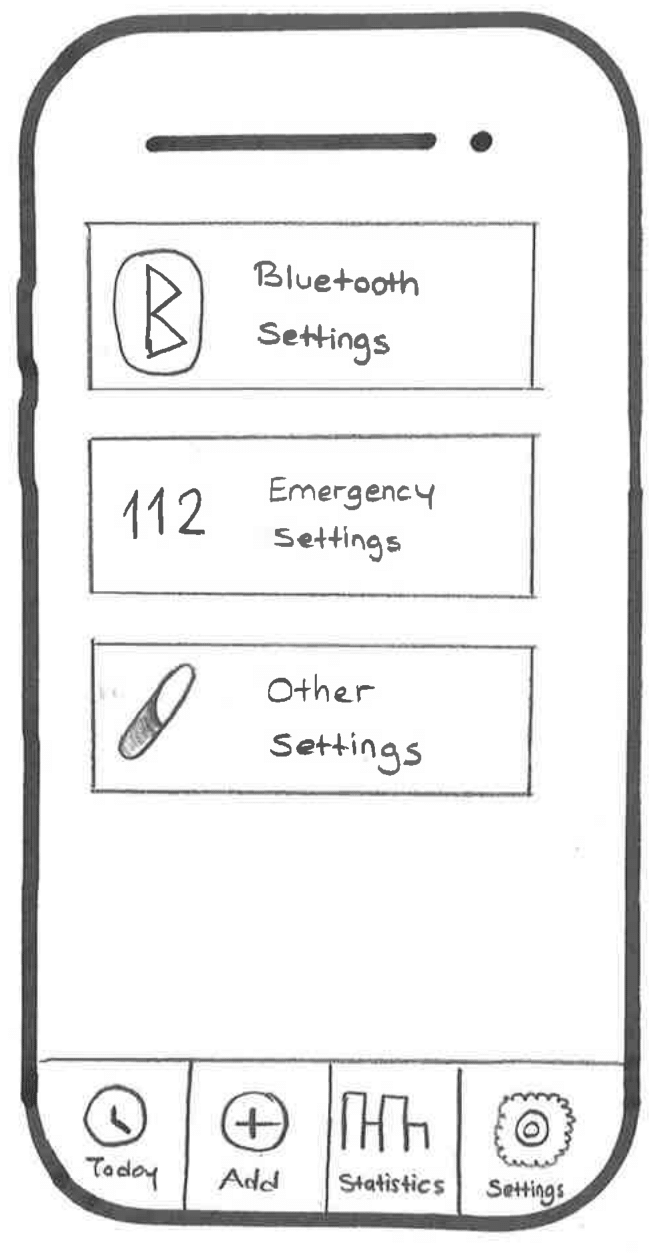 Bluetooth
Settings
112
Emergency
Settings
Other
Settings
Today
Add
Statistics
Settings